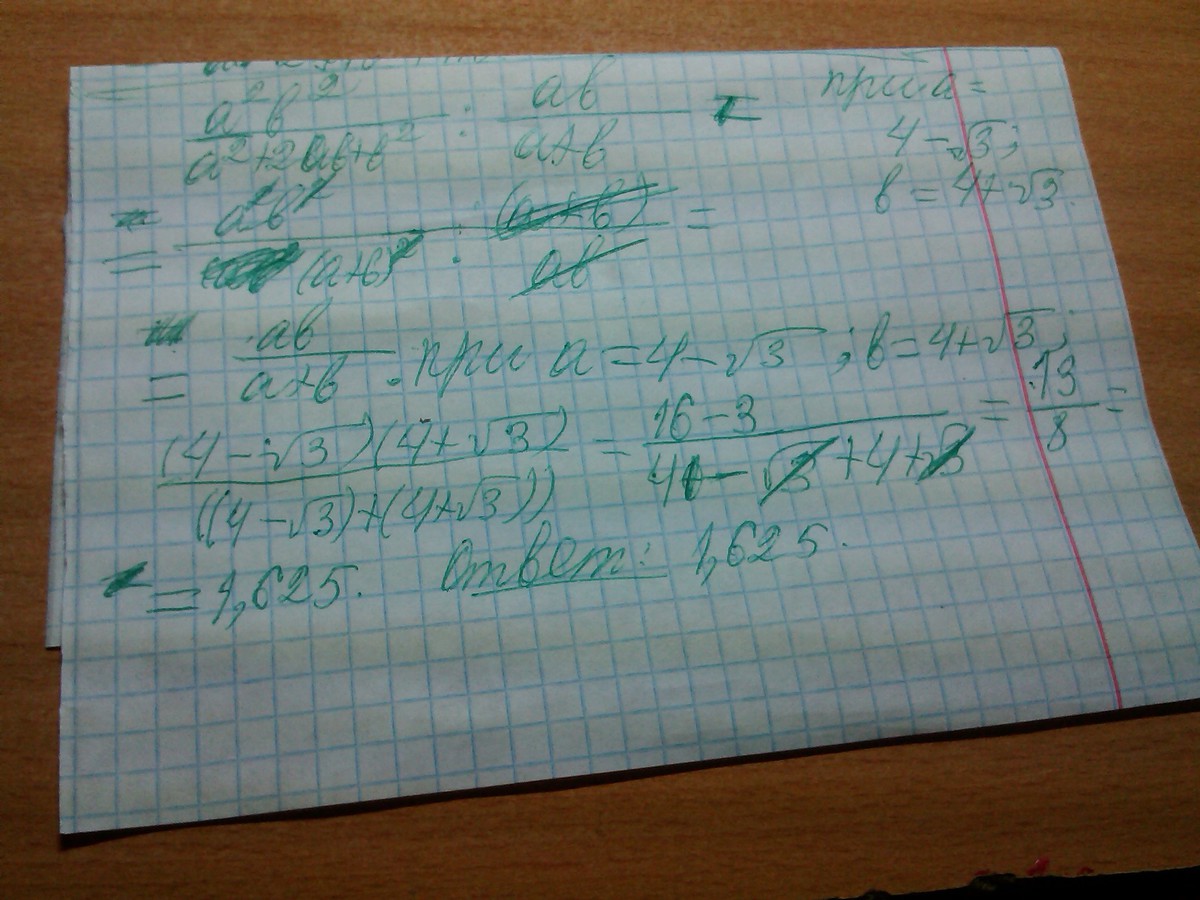 a²b² / a²+2ab+b² : ab / a+b = при a=
4-√3;
b=4+√3.
= a²b² / (a+b)² : (a+b) / ab =
= ab / a+b при a=4-√3; b=4+√3;
(4-√3)(4+√3) / ((4-√3)+(4+√3)) = 16-3 / 4-√3+4+√3 = 13 / 8 =
= 1,625. Ответ: 1,625.